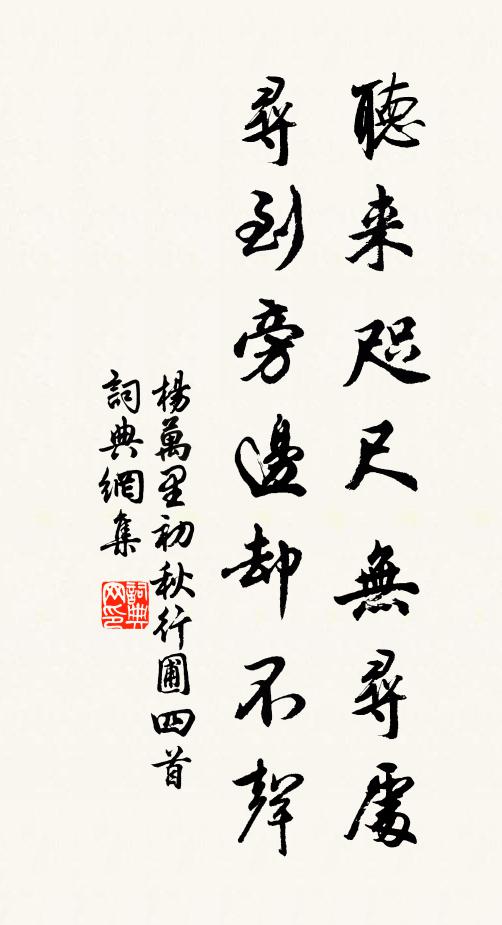 聽来咫尺無尋處
尋到旁邊却不聲
楊萬里初秋行圃四首
詞典網集
詞典网印